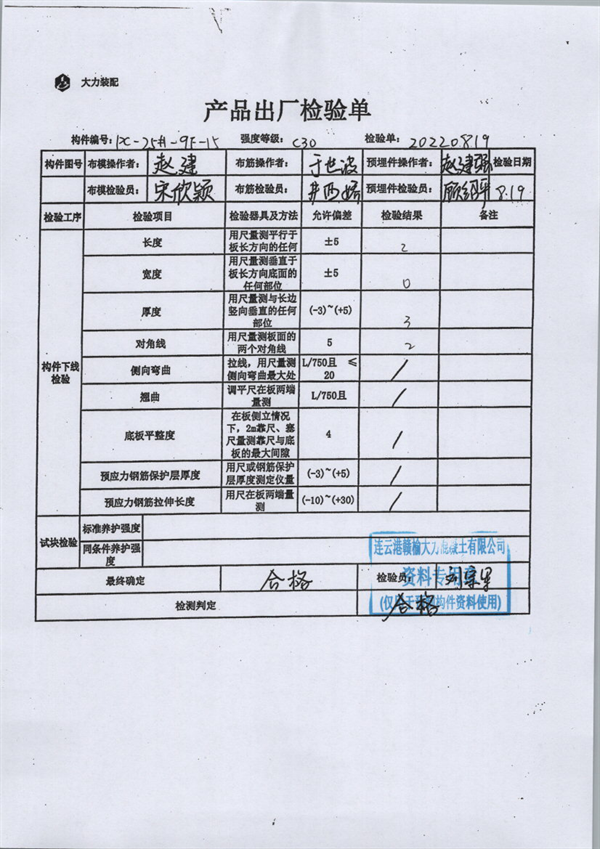 大力装配
产品出厂检验单
构件编号: PC-25#-9F-15 强度等级: C30 检验单: 20220819
构件图号 布模操作者: 赵建 布筋操作者: 于世波 预埋件操作者: 赵建强 检验日期
布模检验员: 宋欣颖 布筋检验员: 预埋件检验员: 8.19
检验工序 检验项目 检验器具及方法 允许偏差 检验结果 备注
构件下线检验
长度 用尺量测平行于板长方向的任何 ±5 2
宽度 用尺量测垂直于板长方向底面的任何部位 ±5 0
厚度 用尺量测与长边竖向垂直的任何部位 (-3)~(+5) 3
对角线 用尺量测板面的两个对角线 5 2
侧向弯曲 拉线，用尺量测侧向弯曲最大处 L/750且 ≤20 /
翘曲 调平尺在板两端量测 L/750且 /
底板平整度 在板侧立情况下，2m靠尺、塞尺量测靠尺与底板的最大间隙 4 /
预应力钢筋保护层厚度 用尺或钢筋保护层厚度测定仪量 (-3)~(+5) /
预应力钢筋拉伸长度 用尺在板两端量测 (-10)~(+30) /
试块检验 标准养护强度
同条件养护强度
连云港赣榆大力混凝土有限公司
最终确定 合格 检验员:
资料专用章
检测判定 合格